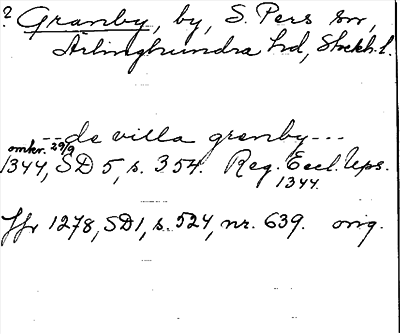 ? Granby, by, S. Pers sn,
Ärlinghundra hd, Stockh. l.
--- de villa granby ---
omkr. 29/9
1344, SD 5, s. 354. Reg. Eccl. Ups.
1344.
Jfr 1278, SD 1, s. 524, nr. 639. orig.